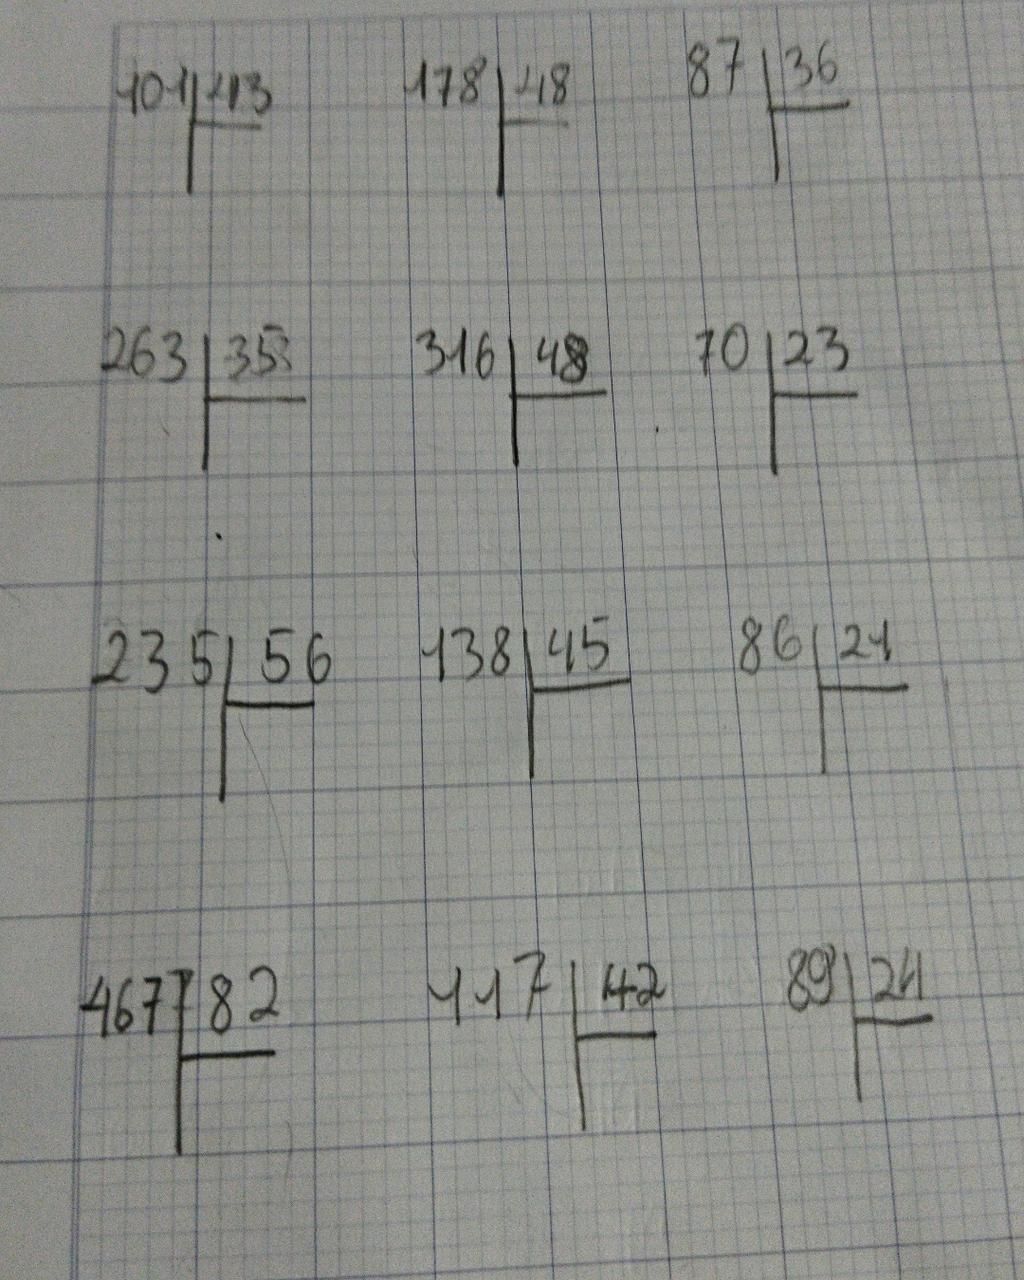 101 43 178 48 87 36
263 35 316 48 70 23
235 56 138 45 86 21
467 82 117 42 89 21